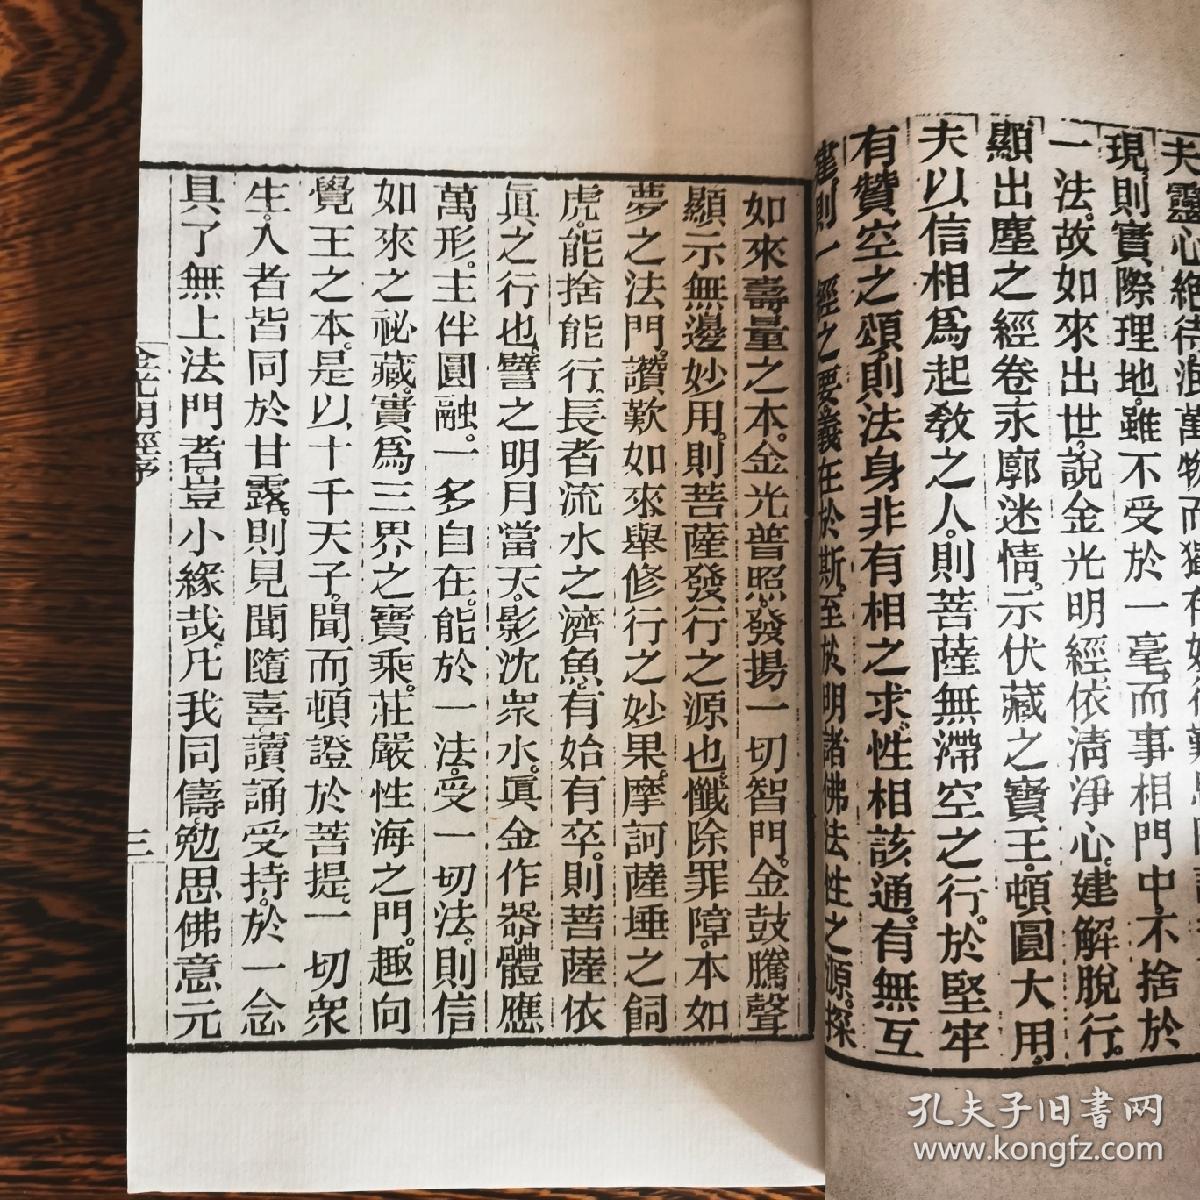 夫靈心絕待泯萬物而獨
現。則實際理地。雖不受於一毫。而事相門中。不捨於
一法。故如來出世。說金光明經。依清淨心。建解脫行。
顯出塵之經卷。永廓迷情。示伏藏之寶王。頓圓大用。
夫以信相為起教之人。則菩薩無滯空之行。於堅牢
有贊空之頌。則法身非有相之求。性相該通。有無互
則一經之要義在於斯。至於明諸佛法性之源。探
如來壽量之本。金光普照。發揚一切智門。金鼓騰聲
顯示無邊妙用。則菩薩發行之源也。懺除罪障。本如
夢之法門。讚歎如來舉修行之妙果。摩訶薩埵之飼
虎。能捨能行。長者流水之濟魚。有始有卒。則菩薩依
眞之行也。譬之明月當天。影沈衆水。眞金作器。體應
萬形。主伴圓融。一多自在。能於一法。受一切法。則信
如來之祕藏。實為三界之寶乘。莊嚴性海之門。趣向
覺王之本。是以十千天子。聞而頓證於菩提。一切衆
生。入者皆同於甘露。則見聞隨喜。讀誦受持。於一念
具了無上法門者。豈小緣哉。凡我同儔。勉思佛意元
金光明經序
三
孔夫子旧书网
www.kongfz.com